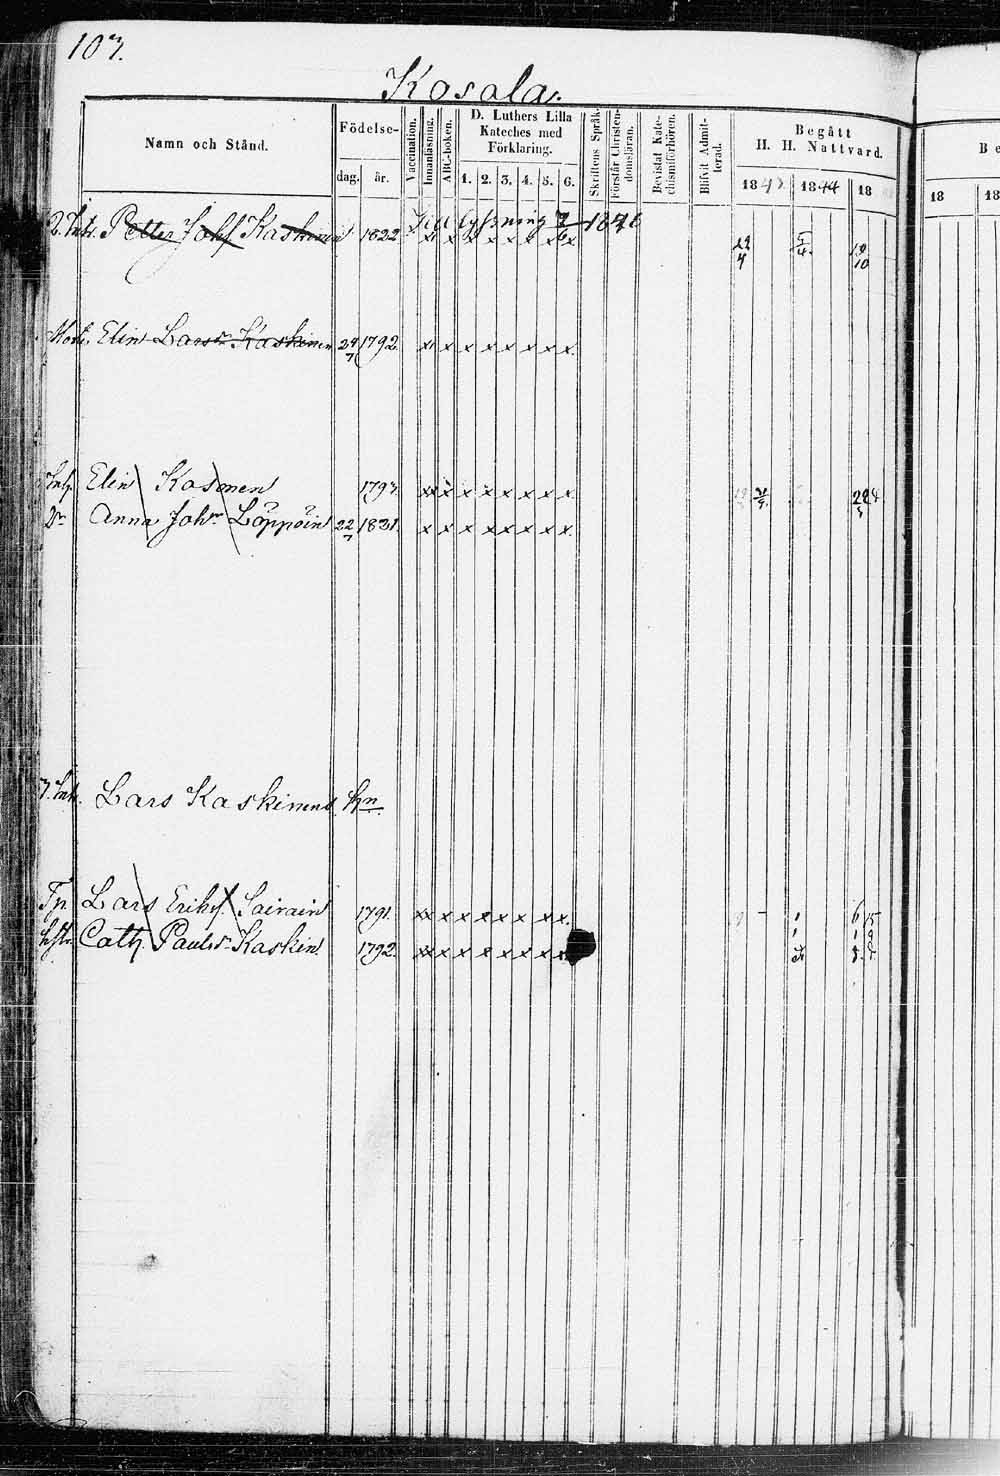 103.
Kosola.
Namn och Stånd.
Födelse-
dag. år.
Vaccination.
Innanläsning.
ABC-boken.
D. Luthers Lilla
Kateches med
Förklaring.
1. 2. 3. 4. 5. 6.
Skriftens Språk.
Förstår Christen-
domsläran.
Bevistat Kate-
chismiförhören.
Blifvit Admit-
terad.
Begått
H. H. Nattvard.
18 1844 18
18 18
Be
Petter Johs Kaskinen 1822 x x x x x x x x
lysning 1846
22/4 19/10
Elin Larsdr Kaskinen 24/7 1792 x x x x x x x x
Elin Kosonen 1793 x x x x x x x x x
Dr Anna Johsdr Löppöin 22/7 1831. x x x x x x x x
Lars Kaskinens hn
Lars Eriks. Sairain 1791. x x x x x x x x x
hstr Cath. Paulsdr Kaskin. 1792. x x x x x x x x x